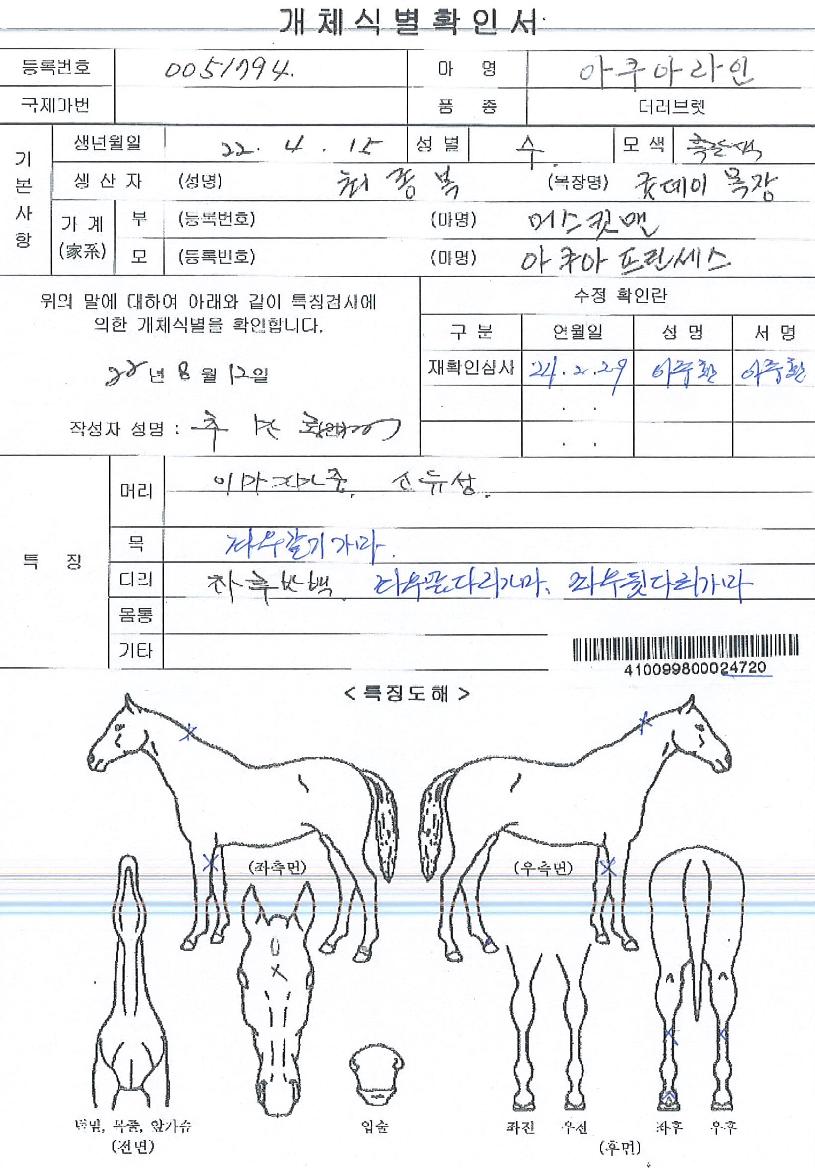 개체식별확인서
등록번호 0051794. 마 명 아쿠아라인
국제마번 품 종 더러브렛
기본사항
생년월일 22. 4. 15 성 별 수 모 색 흑갈색
생 산 자 (성명) 최종복 (목장명) 굿데이 목장
가 계 (家系)
부 (등록번호) (마명) 머스킷맨
모 (등록번호) (마명) 아쿠아 프린세스
위의 말에 대하여 아래와 같이 특징검사에
의한 개체식별을 확인합니다.
22년 8월 12일
작성자 성명 :
수정 확인란
구 분 연월일 성 명 서 명
재확인심사 24. 2. 29 이주환 이주환
. .
. .
특 징
머리
목 좌우갈기가마.
다리 좌후반백. 좌우뒷다리가마
몸통
기타
410099800024720
< 특징도해 >
(좌측면) (우측면)
목밑, 앞가슴 입술 좌전 우전 좌후 우후
(전면) (후면)